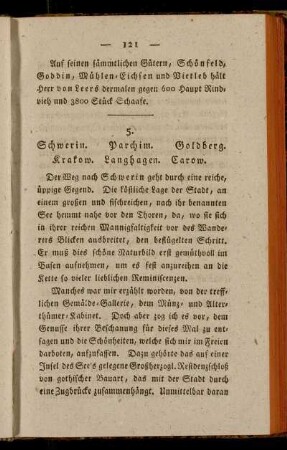 — 121 —
Auf seinen sämmtlichen Gütern, Schönfeld,
Goddin, Mühlen-Eichsen und Vietleb hält
Herr von Leers dermalen gegen 600 Haupt Rind-
vieh und 3800 Stück Schaafe.
5.
Schwerin. Parchim. Goldberg.
Krakow. Langhagen. Carow.
Der Weg nach Schwerin geht durch eine reiche,
üppige Gegend. Die köstliche Lage der Stadt, an
einem großen und fischreichen, nach ihr benannten
See hemmt nahe vor den Thoren, da, wo sie sich
in ihrer reichen Mannigfaltigkeit vor des Wande-
rers Blicken ausbreitet, den beflügelten Schritt.
Er muß dies schöne Naturbild erst gemüthvoll im
Busen aufnehmen, um es fest anzureihen an die
Kette so vieler lieblichen Reminiscenzen.
Manches war mir erzählt worden, von der treff-
lichen Gemälde-Gallerie, dem Münz- und Alter-
thümer-Kabinet. Doch aber zog ich es vor, dem
Genusse ihrer Beschauung für dieses Mal zu ent-
sagen und die Schönheiten, welche sich mir im Freien
darboten, aufzufassen. Dazu gehörte das auf einer
Insel des See's gelegene Großherzogl. Residenzschloß
von gothischer Bauart, das mit der Stadt durch
eine Zugbrücke zusammenhängt. Unmittelbar daran